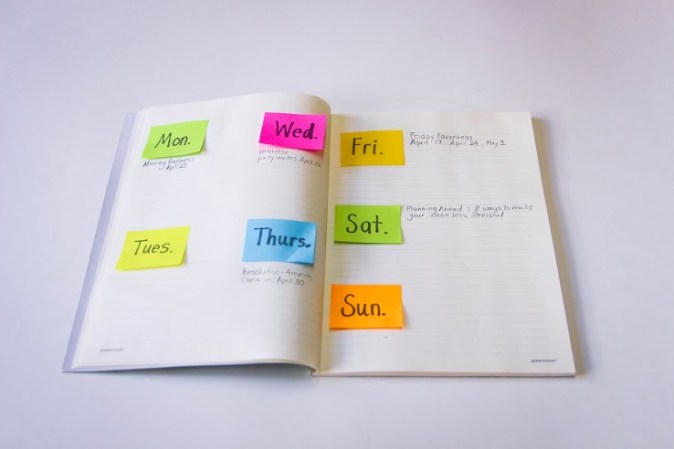 Mon.
April 25
Tues.
Wed.
party invites April 22
Thurs.
check in | April 30
Fri.
Friday Favorites
April 17, April 24, May 1
Sat.
Planning Ahead : 8 ways to make
your week less stressful
Sun.